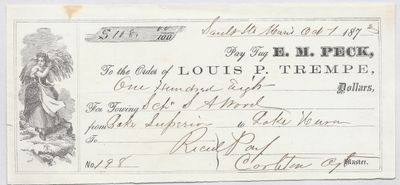 $108 00/100 Sault Ste Marie Oct 1 187
Pay Tug E. M. PECK,
To the Order of LOUIS P. TREMPE,
One Hundred Eight Dollars,
For Towing Schr S A Wood
from Lake Superior to Lake Huron
To Recd Pay
No. 198 Carleton Master.